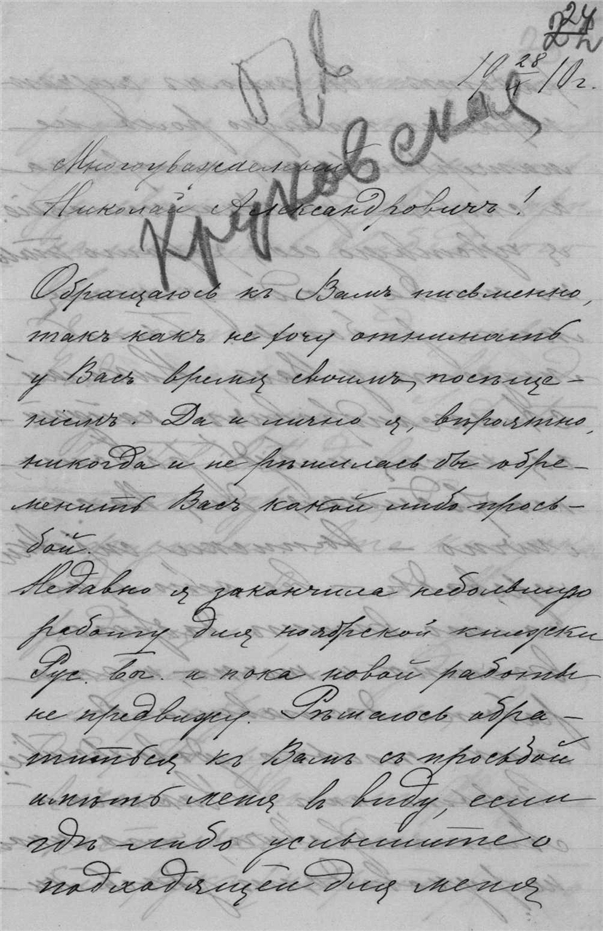 24
19 28/II 10 г.
Круковская
Многоуважаемый
Николай Александровичъ!
Обращаюсь къ Вамъ письменно,
такъ какъ не хочу отнимать
у Васъ время своимъ посѣще-
ніемъ. Да и лично я, вѣроятно,
никогда и не рѣшилась бы обре-
менить Васъ какой либо прось-
бой.
Недавно я закончила небольшую
работу для ноябрской книжки
Рус. Бог. и пока новой работы
не предвижу. Рѣшаюсь обра-
титься къ Вамъ съ просьбой
имѣть меня въ виду, если
гдѣ-либо услышите о
подходящей для меня